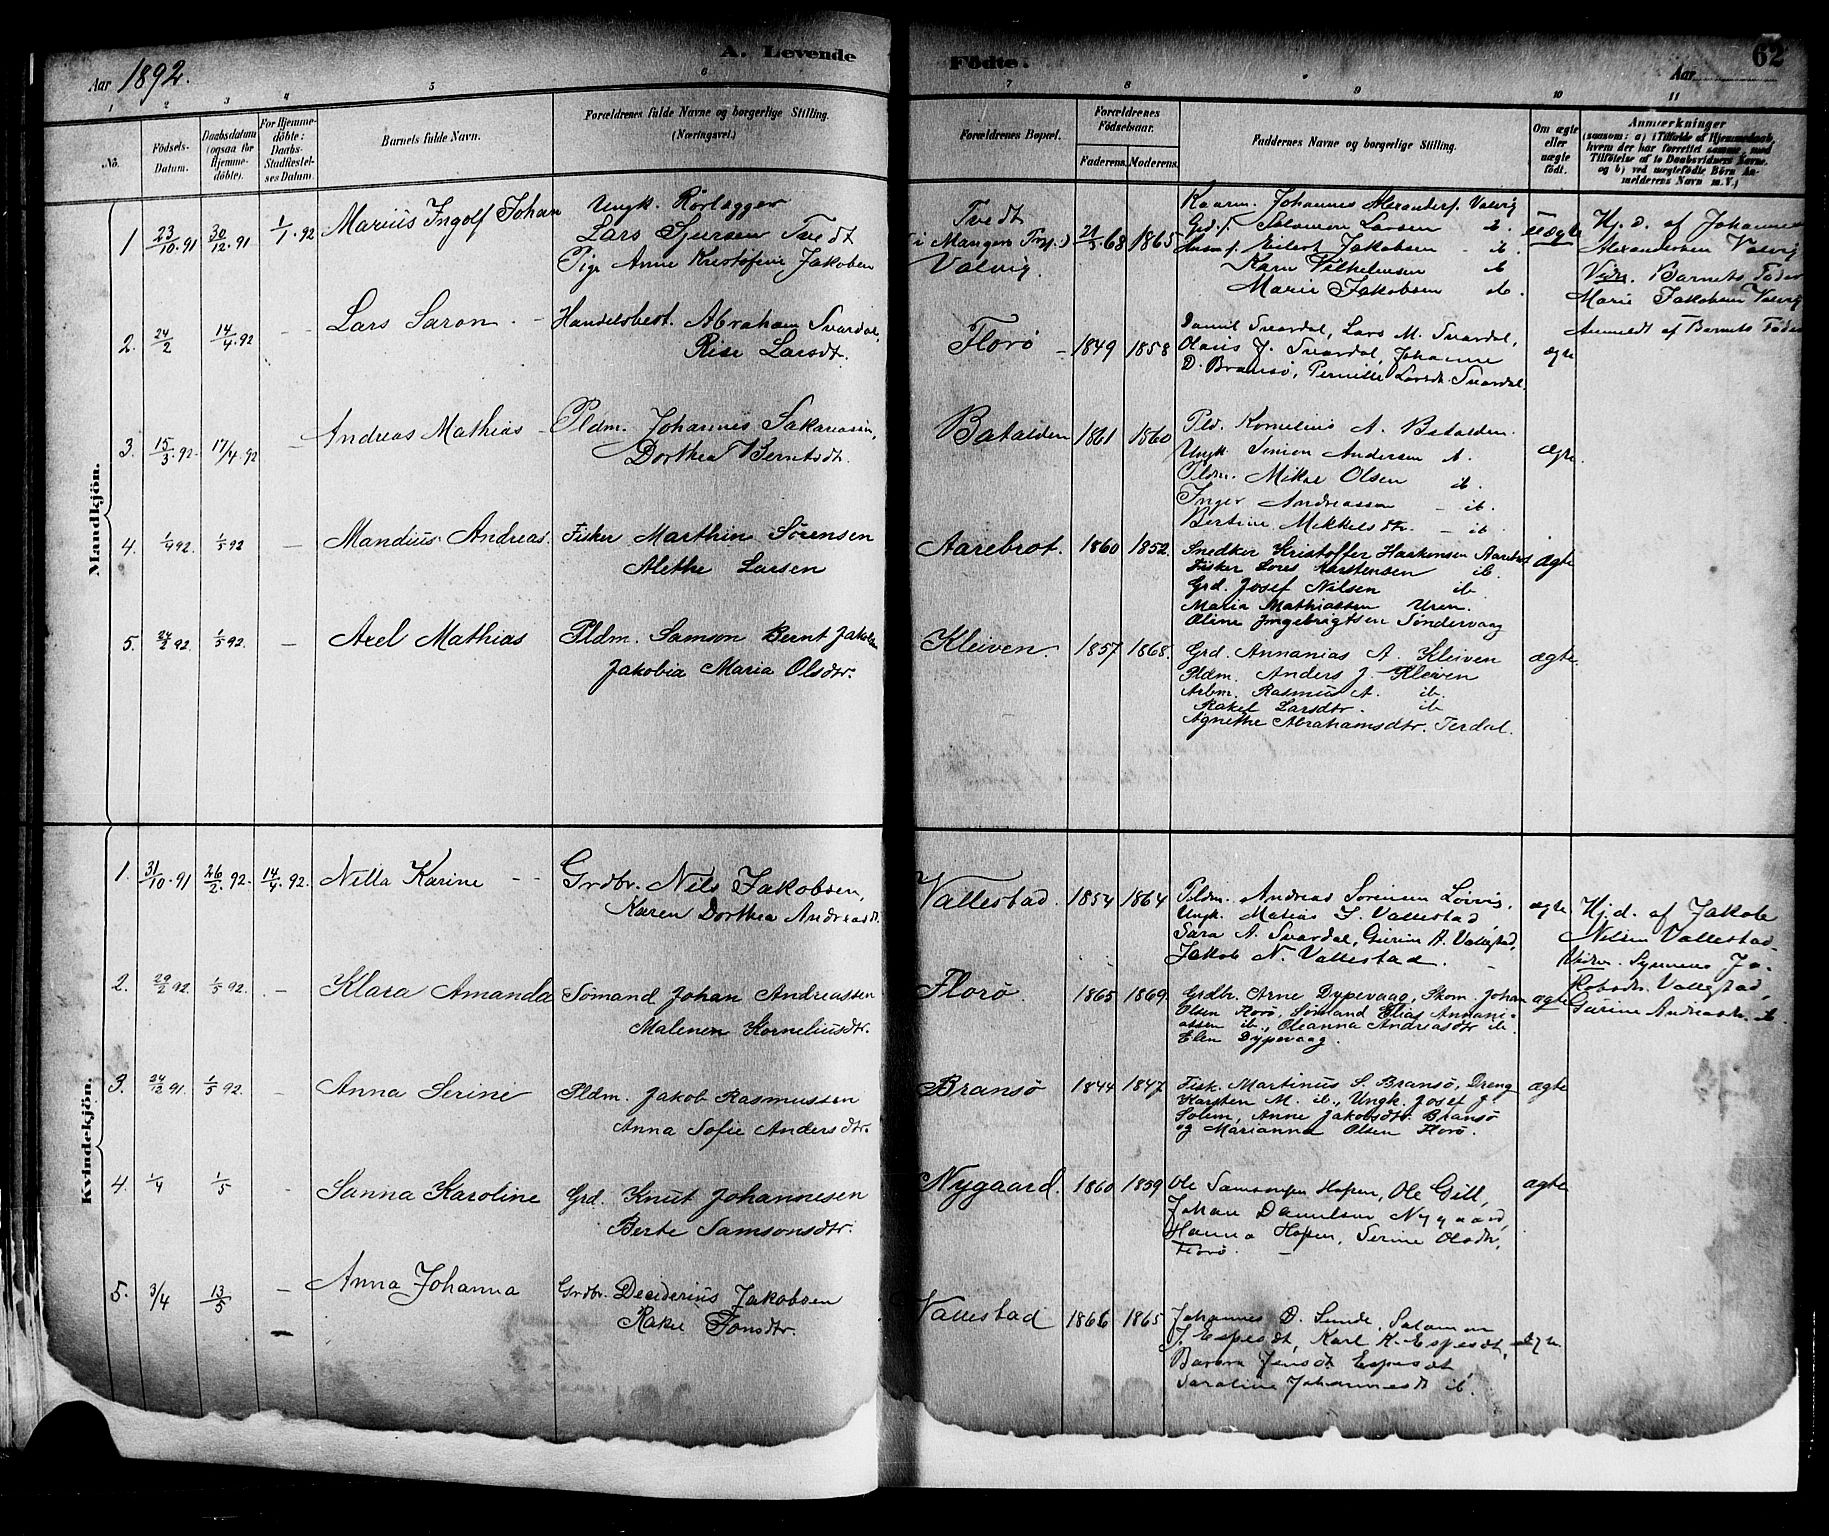 A. Levende Födte.
62
Aar 1892.
Aar
1 2 3 4 5 6 7 8 9 10 11
No.
Födsels-Datum.
Daabsdatum (ogsaa for Hjemmedöbte).
For Hjemmedöbte: Daabs-Stadfæstelses Datum.
Barnets fulde Navn.
Forældrenes fulde Navne og borgerlige Stilling. (Næringsvei.)
Forældrenes Bopæl.
Forældrenes Födselsaar.
Faderens. Moderens.
Faddernes Navne og borgerlige Stilling.
Om ægte eller uægte födt.
Anmærkninger
(saasom: a) i Tilfælde af Hjemmedaab, hvem der har forrettet samme, med Tilföielse af to Daabsvidners Navne, og b) ved uægtefödte Börn Anmelderens Navn m. V.)
Mandkjön.
1 23/10.91 30/12.91 1/1.92 Marius Ingolf Johan
Ungk. Rörlægger
Lars Sjursen Tvedt
Pige Anne Kristofine Jakobsen
Tvedt
(i Mangers Præst.)
Valvig.
21/5.68 1865
Kaarm. Johannes Alexanders. Valvig
Grd.f. Salomon Larsen ib.
Husm.f. Eilert Jakobsen ib
Karn Vilhelmsen ib
Marie Jakobsen ib.
uægte
Hj. d. af Johannes
Alexandersen Valvig
Vidn. Barnets Fader
Marie Jakobsen Valvig
Anmeldt af Barnets Fader
2. 24/2 14/4.92 - Lars Saron.
Handelsbest. Abraham Svardal,
Rise Larsdt.
Florö 1849 1858
Daniel Svardal, Lars M. Svardal,
Olaus J. Svardal, Johanne
D. Bransö, Pernille Larsdt. Svardal.
ægte
3. 15/3.92. 17/4 92 - Andreas Mathias
Pldm. Johannes Sakariassen,
Dorthea Berntsdt.
Batalden 1861 1860
Pld. Kornelius A. Batalden.
Ungk. Simon Andersen ib.
Pldm. Mikal Olsen ib.
Inger Andreassen - ib.
Bertine Mikkelsdtr. - ib.
ægte
4. 1/4 92. 1/5 92 - Mandius Andreas.
Fisker Marthin Sörensen
Alethe Larsen
Aarebrot. 1860 1852
Snedker Kristoffer Haakonsen Aarebrot
Fisker Lores Karstensen ib.
Grd. Josef Nilsen ib.
Maria Mathiassen Uren.
Oline Ingebrigtsen Söndervaag
ægte
5. 24/2 92. 1/5 92. - Axel Mathias
Pldm. Samson Bernt Jakobsen
Jakobia Maria Olsdtr.
Kleiven. 1857 1868.
Grd. Annanias A. Kleiven
Pldm. Anders J. Kleven
Arbm. Rasmus A. ib.
Rakel Larsdtr. ib
Agnethe Abrahamsdtr. Terdal.
ægte.
Kvindekjön.
1. 31/10.91 26/2.92. 14/4.92. Nilla Karine
Grdbr. Nils Jakobsen,
Karen Dorthea Andreasdt.
Vallestad. 1854 1864
Pldm. Andreas Sörensen
Ungk. Matias I. Vallestad
Sara A. Svardal, Gurine A. Vallestad,
Jakob N. Vallestad.
ægte
Hj.d. af Jakob
Nilsen Vallestad.
Vidn. Synneva Ja-
kobsdtr. Vallestad,
Gurine Andreasdtr. ib.
2. 29/2 92. 1/5 92. - Klara Amanda
Sömand Johan Andreassen
Malenen Korneliusdtr.
Florö. 1865 1869.
Grdbr. Arne Dypevaag, Skom. Johan
Olsen Florö, Sömand Elias Annani-
assen ib., Oleanna Andreasdtr ib.
Elen Dypevaag.
ægte
3. 24/12 91. 1/5 92. - Anna Serine
Pldm. Jakob Rasmussen
Anna Sofie Andersdtr.
Bransö 1844 1847.
Fisk. Martinus S. Bransö, Dreng
Karsten M. ib., Ungk. Josef J.
Solem, Anne Jakobsdtr. Bransö
og Marianna Olsen Florö.
ægte
4. 1/4 1/5 - Sanna Karoline
Grd. Knut Johannesen
Berte Samsonsdtr.
Nygaard. 1860 1859
Ole Samsonsen Hopen, Ole Gill,
Johan Danielsen Nygaard,
Hanna Hopen, Serine Olsdtr,
Florö.
ægte
5. 3/4 13/5 - Anna Johanna
Grdbr. Deciderius Jakobsen
Rakel Jonsdtr.
Vallestad 1866 1865
Johannes D. Sunde, Salamon
J. Espesdt, Karl K. Espesdt,
Barbra Jensdt Espesdt
Saroline Johannesdt ib.
ægte